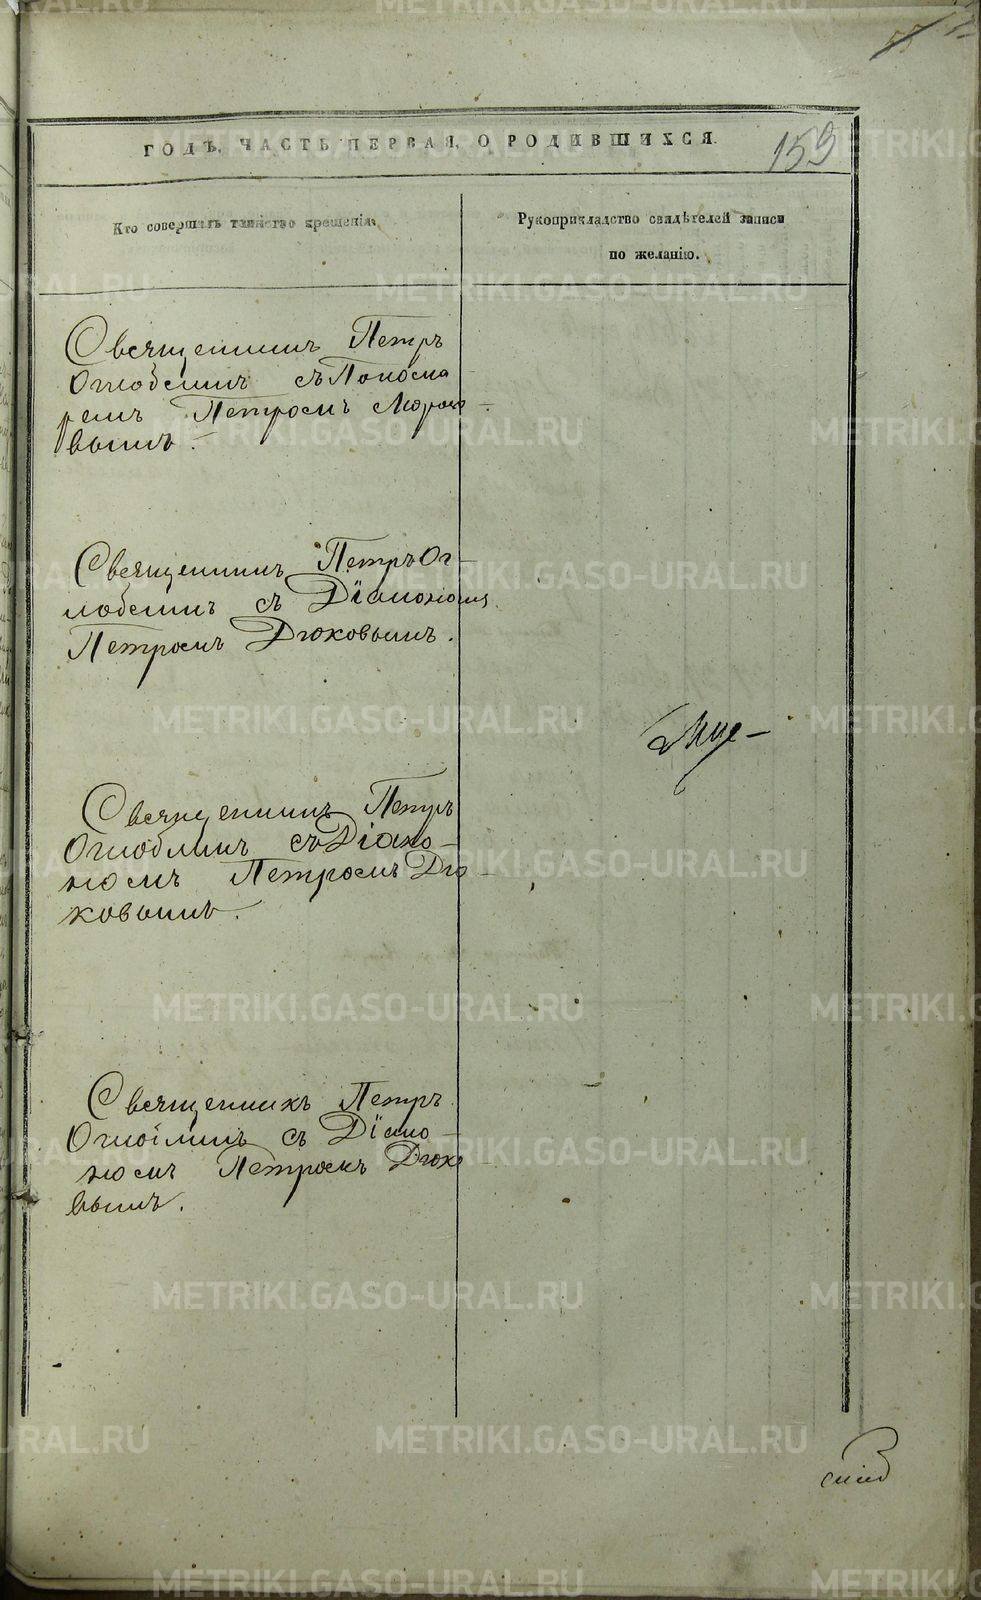 ГОДЪ, ЧАСТЬ ПЕРВАЯ, О РОДИВШИХСЯ.
159
Кто совершалъ таинство крещенія.
Рукоприкладство свидѣтелей записи
по желанію.
Священникъ Петръ
Оглоблинъ съ Понома
ремъ Петромъ
вымъ.
Священникъ Петръ Ог-
лоблинъ съ Діакономъ
Петромъ Дюковымъ.
Священникъ Петръ
Оглоблинъ съ Діако-
номъ Петромъ Дю-
ковымъ.
Священникъ Петръ
Оглоблинъ съ Діако-
номъ Петромъ Дюко-
вымъ.
METRIKI.GASO-URAL.RU